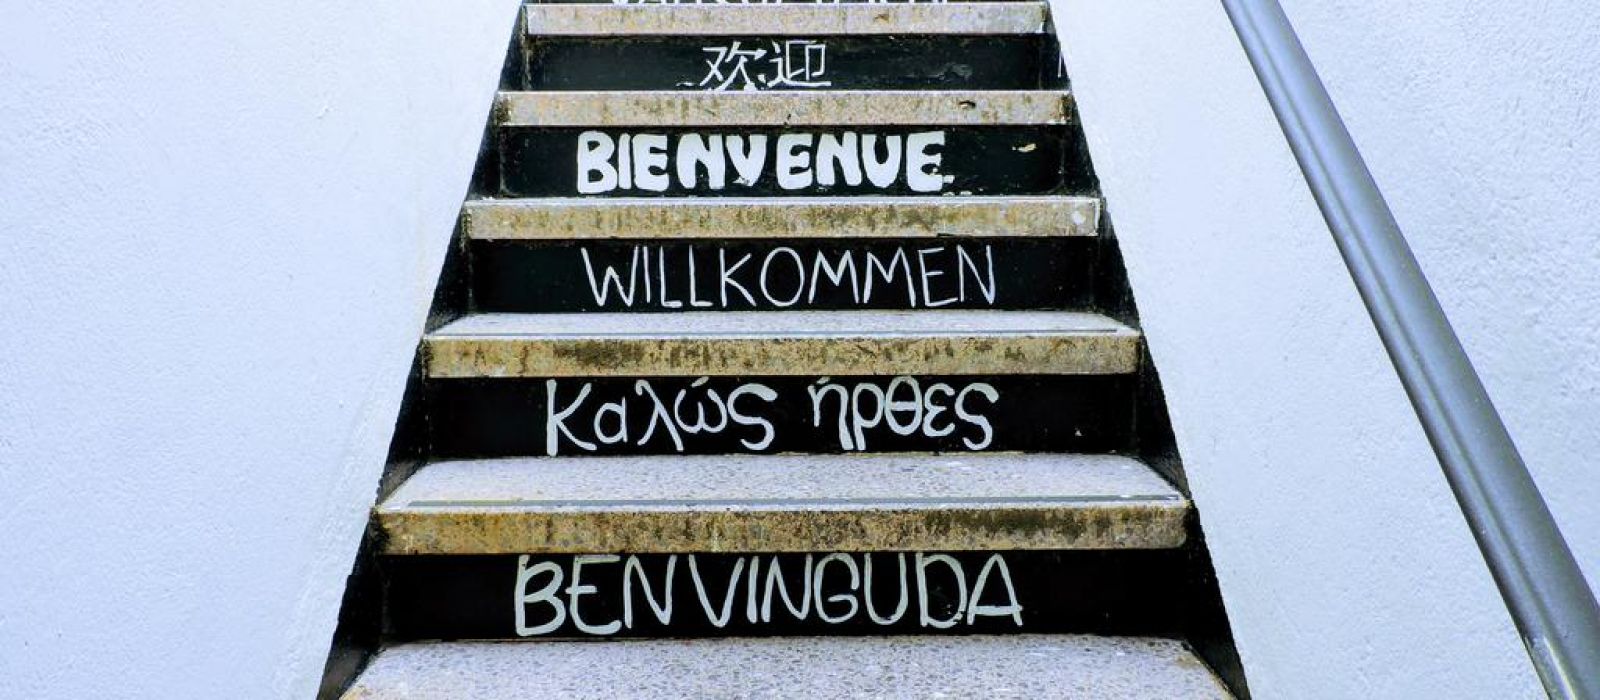 欢迎
BIENVENUE
WILLKOMMEN
Καλώς ήρθες
BENVINGUDA